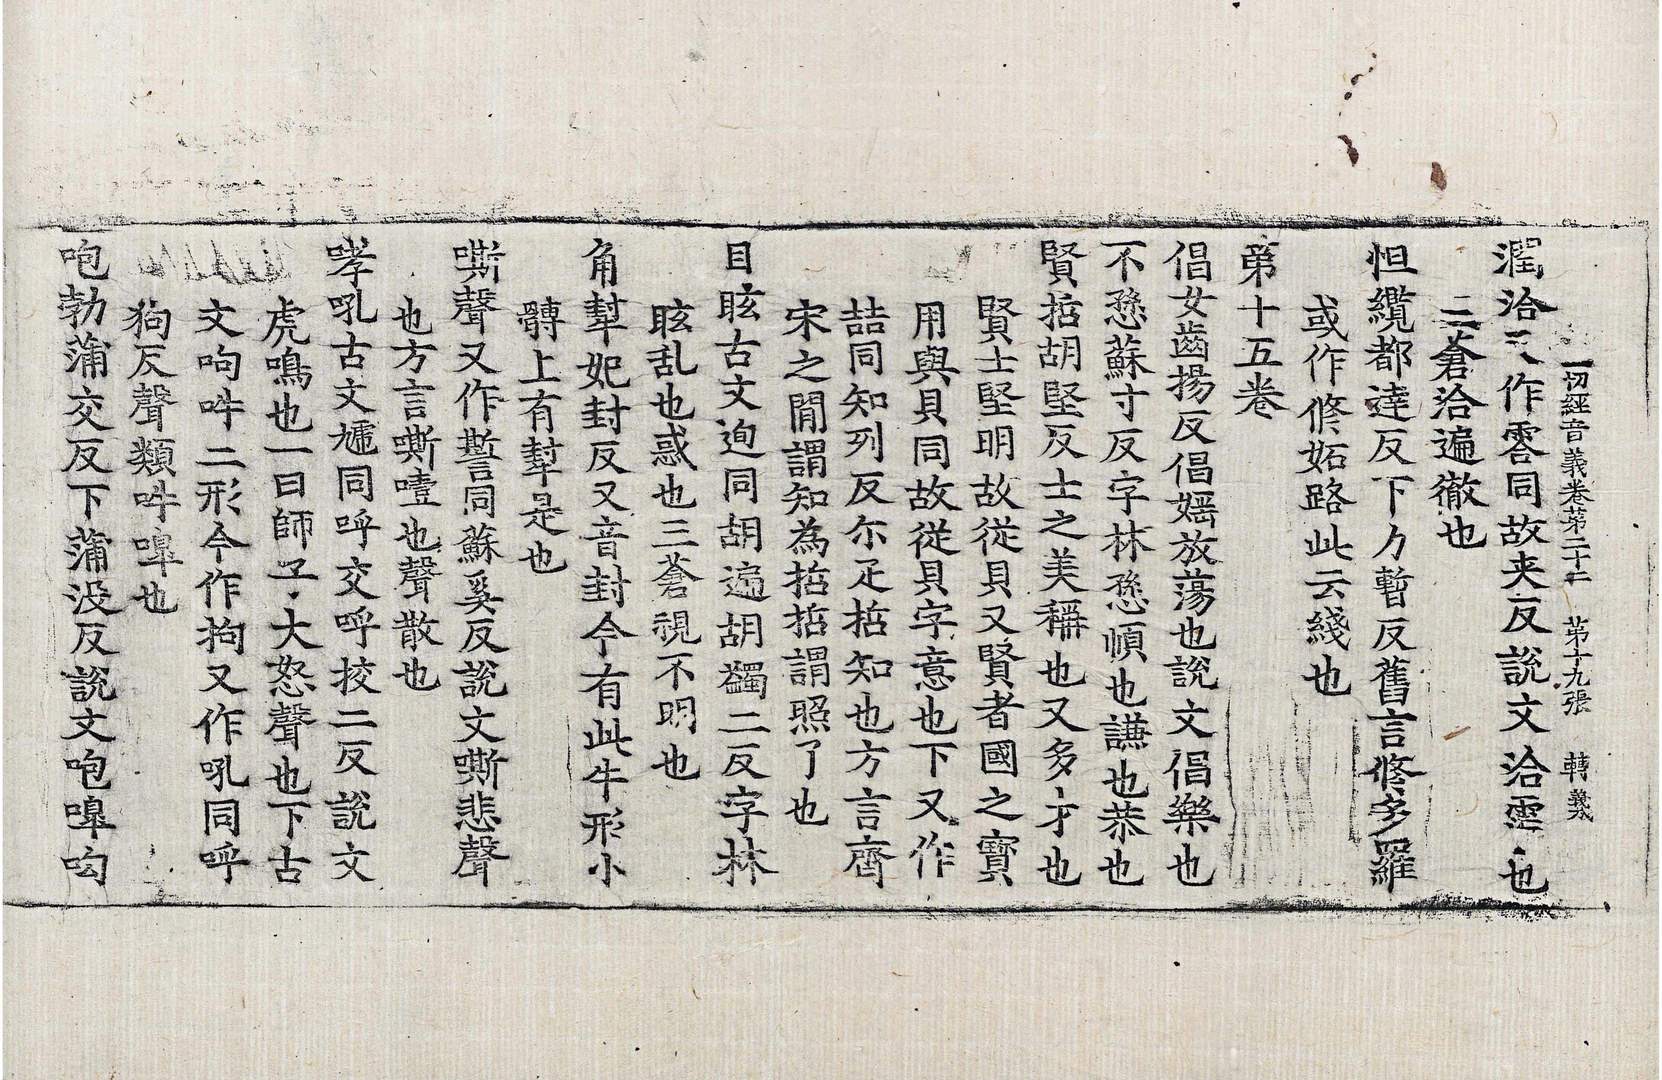 一切経音義卷第二十二　第十九張　轉義
潤洽又作零同故夾反說文洽霑也
二蒼洽遍徹也
怛纜都達反下力暫反舊言修多羅
或作修妬路此云綫也
第十五卷
倡女齒揚反倡婬放蕩也說文倡樂也
不愻蘇寸反字林愻順也謙也恭也
賢哲胡堅反士之美稱也又多才也
賢士堅明故從貝又賢者國之寶
用與貝同故從貝字意也下又作
喆同知列反尓疋哲知也方言齊
宋之閒謂知為哲哲謂照了也
目眩古文迿同胡遍胡蠲二反字林
眩乱也惑也三蒼視不明也
角犎妃封反又音封今有此牛形小
髆上有犎是也
嘶聲又作誓同蘇奚反說文嘶悲聲
也方言嘶噎也聲散也
哮吼古文唬同呼交呼挍二反說文
虎鳴也一曰師子大怒聲也下古
文呴吽二形今作拘又作吼同呼
狗反聲類吽嘷也
咆勃蒲交反下蒲没反說文咆嘷呴